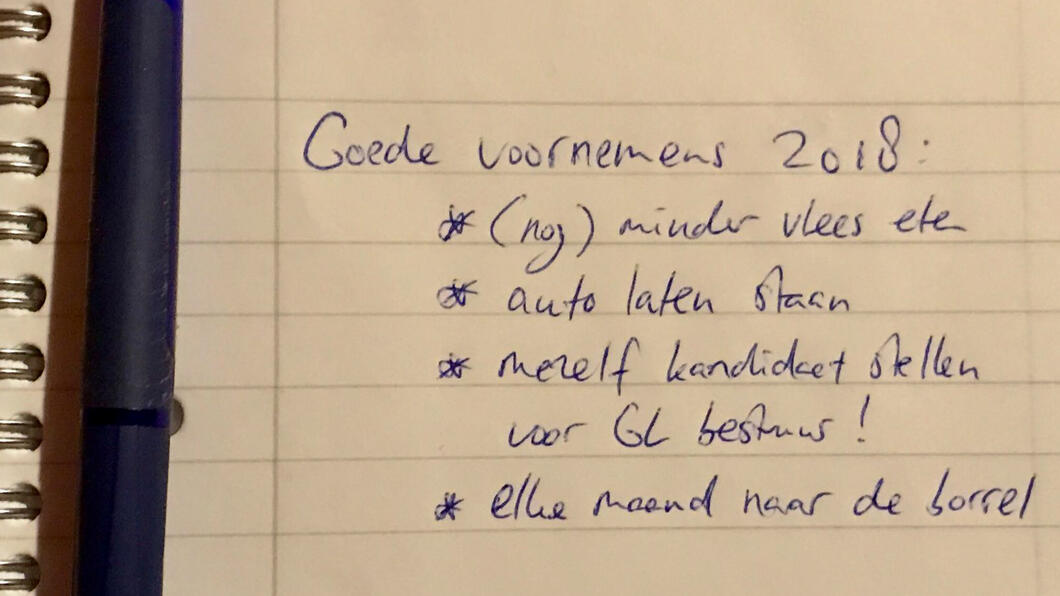 Goede voornemens 2018:
* (nog) minder vlees eten
* auto laten staan
* mezelf kandidaat stellen
voor GL bestuur!
* elke maand naar de borrel